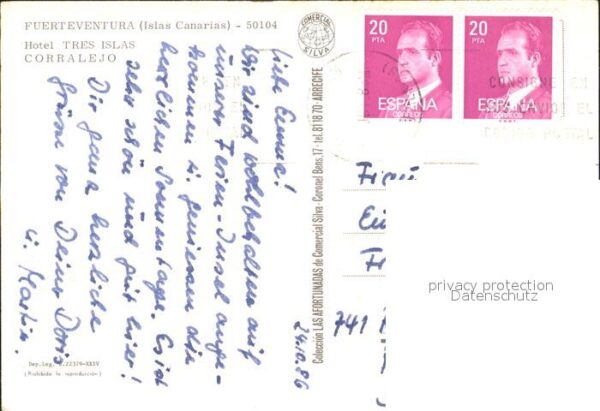 FUERTEVENTURA (Islas Canarias) - 50104
Hotel TRES ISLAS
CORRALEJO
COMERCIAL
SILVA
20
PTA
ESPAÑA
CORREOS
20
PTA
ESPAÑA
CORREOS
CONSIGNE EN
EL
POSTAL
24.10.80
Liebe Emmi!
Wir sind wohlbehalten auf
unserer Ferien-Insel ange-
kommen u. geniessen die
herrlichen Sonnentage. Es ist
sehr schön und gut hier!
Dir ganz herzliche
Grüsse von Deiner Doris
u. Martin.
Colección LAS AFORTUNADAS de Comercial Silva - Coronel Bens, 17 - tel. 81 18 70 ARRECIFE
741
privacy protection
Datenschutz
Dep. Leg. B. 22379-XXIV
(Prohibida la reproducción)